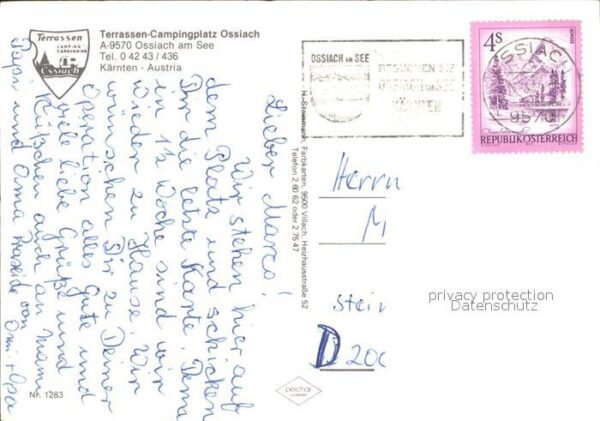 Terrassen
CAMPING
CARAVANING
Ossiach
Terrassen-Campingplatz Ossiach
A-9570 Ossiach am See
Tel. 0 42 43 / 436
Kärnten - Austria
Lieber Marco!
Wir stehen hier auf
dem Platz und schicken
Dir die letzte Karte. Denn
in 1½ Woche sind wir
wieder zu Hause. Wir
wünschen Dir zu Deiner
Operation alles Gute und
viele liebe Grüße und
Küßchen auch an Mami
Papi und Oma von
Omi + Opa
Nr. 1283
H. Steinmann Farbkarten, 9500 Villach, Heizhausstraße 52
Telefon 2 60 62 oder 2 75 47
OSSIACH AM SEE
BESUCHEN SIE
KÄRNTEN
OSSIACH
9570
4S
REPUBLIK ÖSTERREICH
Herrn
M
Stein
D 200
privacy protection
Datenschutz